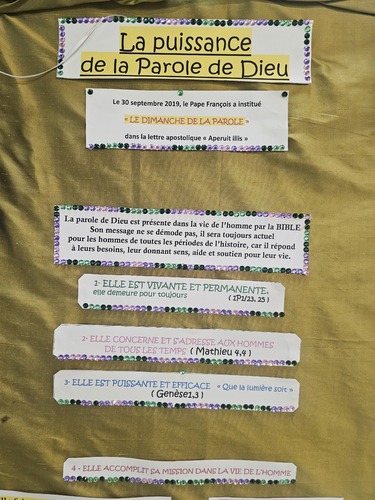 La puissance
de la Parole de Dieu
Le 30 septembre 2019, le Pape François a institué
« LE DIMANCHE DE LA PAROLE »
dans la lettre apostolique « Aperuit illis »
La parole de Dieu est présente dans la vie de l'homme par la BIBLE
Son message ne se démode pas, il sera toujours actuel
pour les hommes de toutes les périodes de l'histoire, car il répond
à leurs besoins, leur donnant sens, aide et soutien pour leur vie.
1- ELLE EST VIVANTE ET PERMANENTE,
elle demeure pour toujours ( 1P1/23, 25 )
2- ELLE CONCERNE ET S'ADRESSE AUX HOMMES
DE TOUS LES TEMPS ( Mathieu 4,4 )
3- ELLE EST PUISSANTE ET EFFICACE « Que la lumière soit »
( Genèse1,3 )
4 - ELLE ACCOMPLIT SA MISSION DANS LA VIE DE L'HOMME